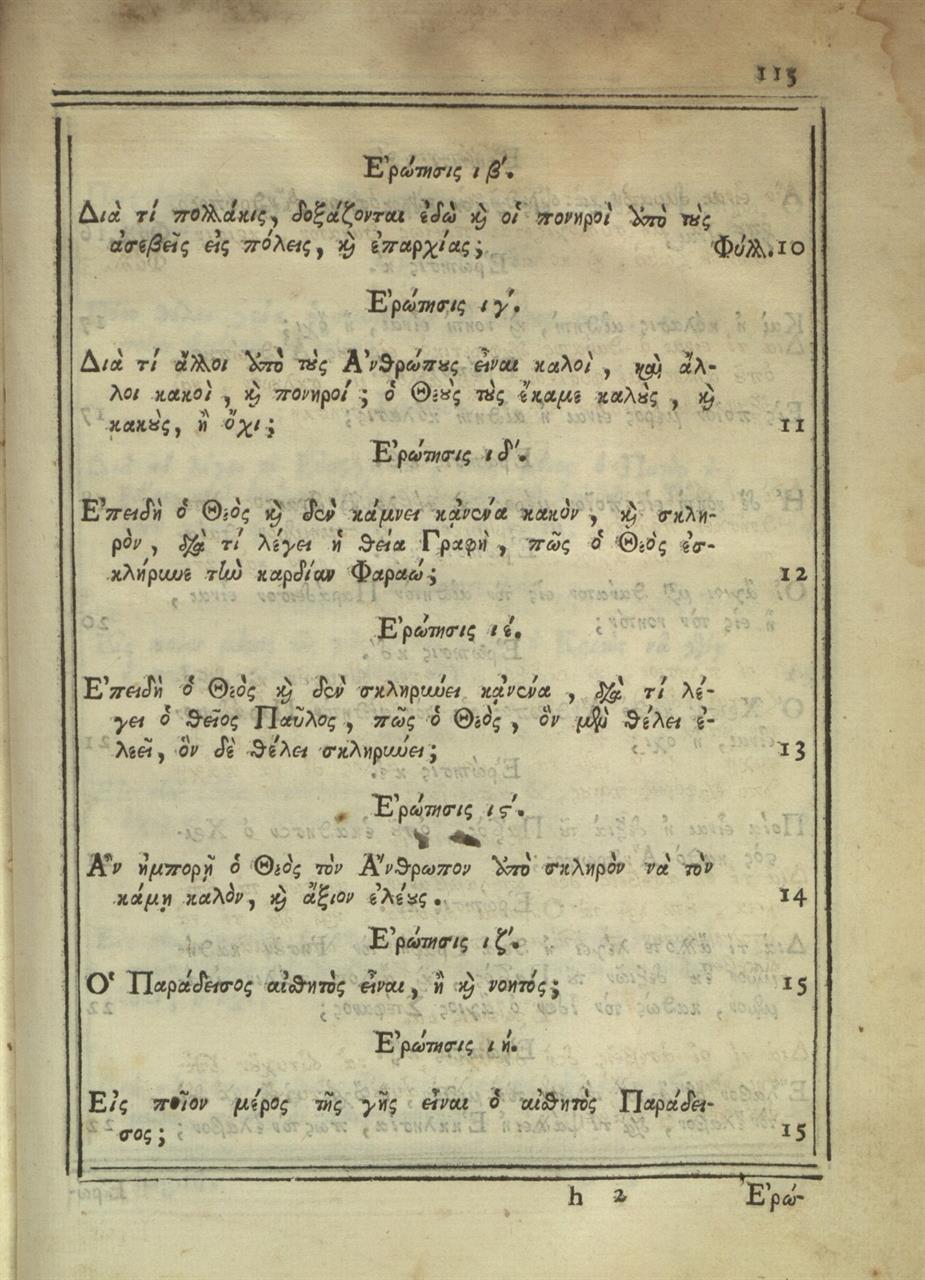 115
Ἐρώτησις ιβ'.
Διὰ τί πολλάκις, δοξάζονται ἐδὼ καὶ οἱ πονηροὶ ἀπὸ τοὺς
ἀσεβεῖς εἰς πόλεις, καὶ ἐπαρχίας; Φύλλ. 10
Ἐρώτησις ιγ'.
Διὰ τί ἄλλοι ἀπὸ τοὺς Ἀνθρώπους εἶναι καλοὶ, καὶ ἄλ-
λοι κακοὶ, καὶ πονηροί; ὁ Θεὸς τοὺς ἔκαμε καλοὺς, καὶ
κακοὺς, ἢ ὄχι; 11
Ἐρώτησις ιδ'.
Ἐπειδὴ ὁ Θεὸς καὶ δὲν κάμνει κᾀνένα κακὸν, καὶ σκλη-
ρὸν, διὰ τί λέγει ἡ θεία Γραφὴ, πῶς ὁ Θεὸς ἐσ-
κλήρυνε τὴν καρδίαν Φαραώ; 12
Ἐρώτησις ιέ.
Ἐπειδὴ ὁ Θεὸς καὶ δὲν σκληρύνει κᾀνένα, διὰ τί λέ-
γει ὁ θεῖος Παῦλος, πῶς ὁ Θεὸς, ὃν μὲν θέλει ἐ-
λεεῖ, ὃν δὲ θέλει σκληρύνει; 13
Ἐρώτησις ις'.
Ἂν ἠμπορῇ ὁ Θεὸς τὸν Ἄνθρωπον ἀπὸ σκληρὸν νὰ τὸν
κάμῃ καλὸν, καὶ ἄξιον ἐλέους. 14
Ἐρώτησις ιζ'.
Ὁ Παράδεισος αἰσθητὸς εἶναι, ἢ καὶ νοητός; 15
Ἐρώτησις ιή.
Εἰς ποῖον μέρος τῆς γῆς εἶναι ὁ αἰσθητὸς Παράδει-
σος; 15
h 2 Ἐρώ-